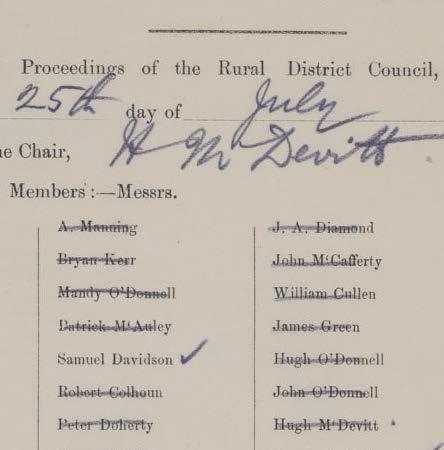 Proceedings of the Rural District Council,
25th day of July
he Chair, H McDevitt
Members :—Messrs.
A. Manning
Bryan Kerr
Mandy O'Donnell
Patrick M'Auley
Samuel Davidson
Robert Colhoun
Peter Doherty
J. A. Diamond
John M'Cafferty
William Cullen
James Green
Hugh O'Donnell
John O'Donnell
Hugh M'Devitt